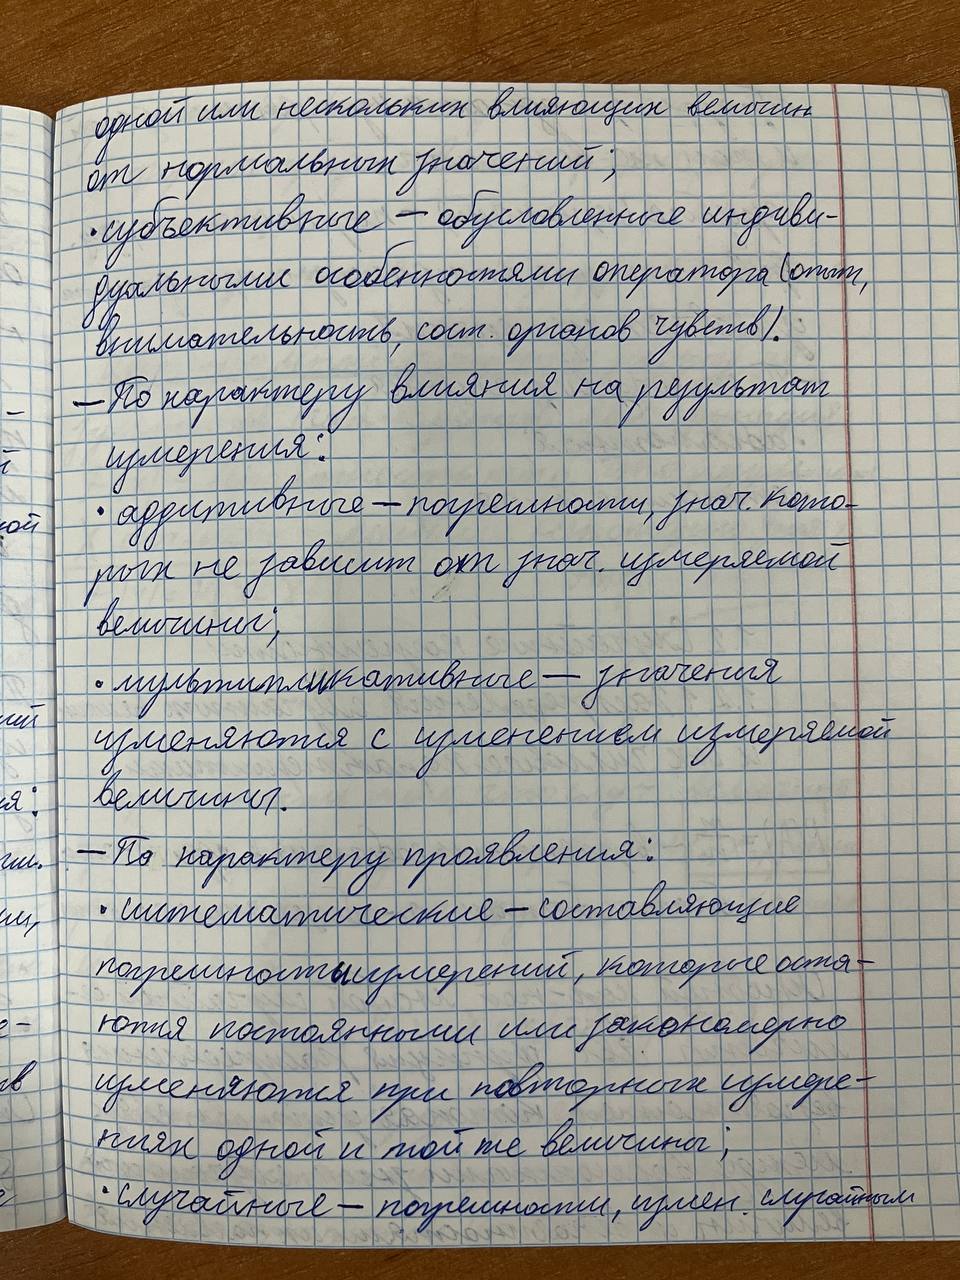 одной или нескольких влияющих величин
от нормальных значений;
• субъективные — обусловленные индиви-
дуальными особенностями оператора (опыт,
внимательность, сост. органов чувств).
— По характеру влияния на результат
измерения:
• аддитивные — погрешности, знач. кото-
рых не зависит от знач. измеряемой
величины;
• мультипликативные — значения
изменяются с изменением измеряемой
величины.
— По характеру проявления:
• систематические — составляющие
погрешности измерений, которые оста-
ются постоянными или закономерно
изменяются при повторных измере-
ниях одной и той же величины;
• случайные — погрешности, измен. случайным